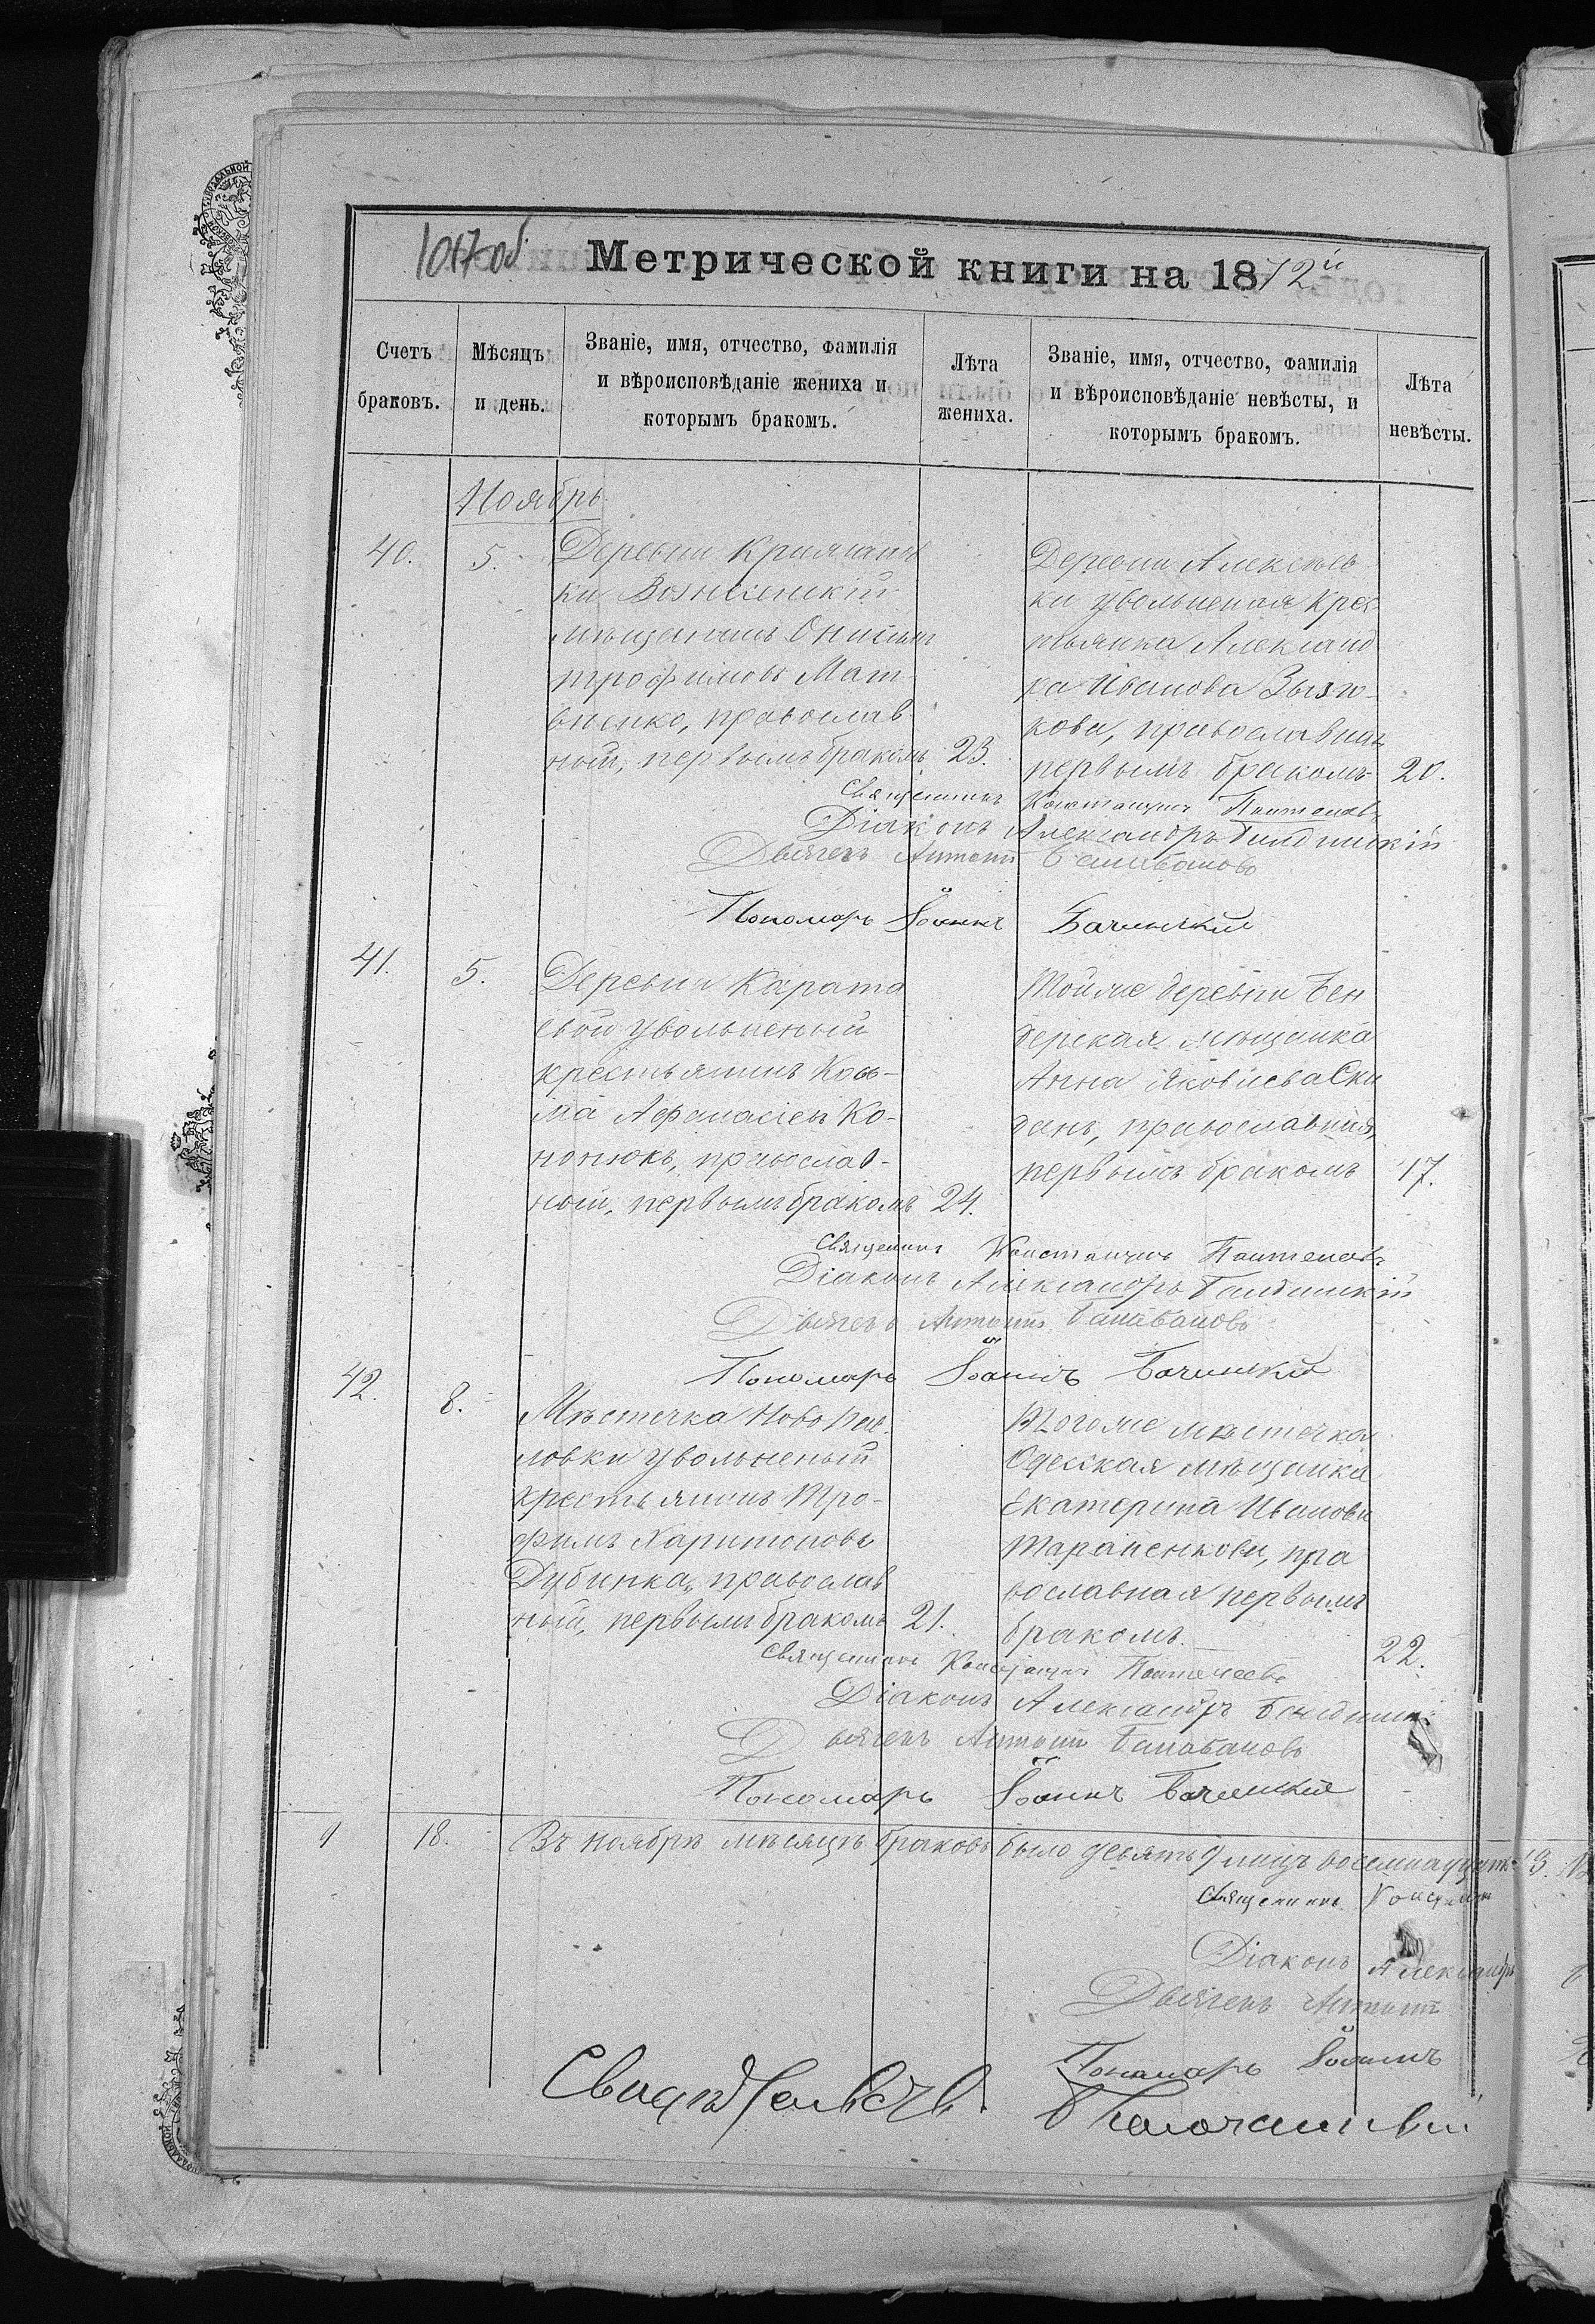 1017 об.
Метрической книги на 1872й
Счетъ браковъ.
Мѣсяцъ и день.
Званіе, имя, отчество, фамилія
и вѣроисповѣданіе жениха и
которымъ бракомъ.
Лѣта жениха.
Званіе, имя, отчество, фамилія
и вѣроисповѣданіе невѣсты, и
которымъ бракомъ.
Лѣта невѣсты.
Ноябрь
40.
5.
Деревни
ки Вознесенскій
мѣщанинъ Онисимъ
Трофимовъ Мат-
віенко, православ-
ный, первымъ бракомъ
23.
Деревни Алексѣев-
ки уволненая крес-
тьянка Александ-
ра Иванова
кова, православная
первымъ бракомъ
20.
Священникъ Константинъ
Діаконъ Александръ
Дьячекъ Антоній Балабановъ
Пономарь Іоаннъ Бачинскій
41.
5.
Деревни Карата
евой уволненый
крестьянинъ Кось-
ма Афанасіевъ Ко-
нонюкъ, православ-
ный, первымъ бракомъ
24.
Тойже деревни Бен
дерская мѣщанка
Анна Яковлева Ски
дань, православная,
первымъ бракомъ
17.
Священникъ Константинъ
Діаконъ Александръ
Дьячекъ Антоній Балабановъ
Пономарь Іоаннъ Бачинскій
42.
8.
Мѣстечка Новопав-
ловки уволненый
крестьянинъ Тро-
фимъ Харитоновъ
Дубинка, православ
ный, первымъ бракомъ
21.
Тогоже мѣстечка
Одесская мѣщанка
Екатерина Иванова
Тараненкова, пра
вославная первымъ
бракомъ.
22.
Священникъ Константинъ
Діаконъ Александръ
Дьячекъ Антоній Балабановъ
Пономарь Іоаннъ Бачинскій
9
18.
Въ ноябрѣ мѣсяцѣ браковъ было девять 9 лицъ восемнадцать 18.
Священникъ Константинъ
Діаконъ Александръ
Дьячекъ Антоній
Пономарь Іоаннъ